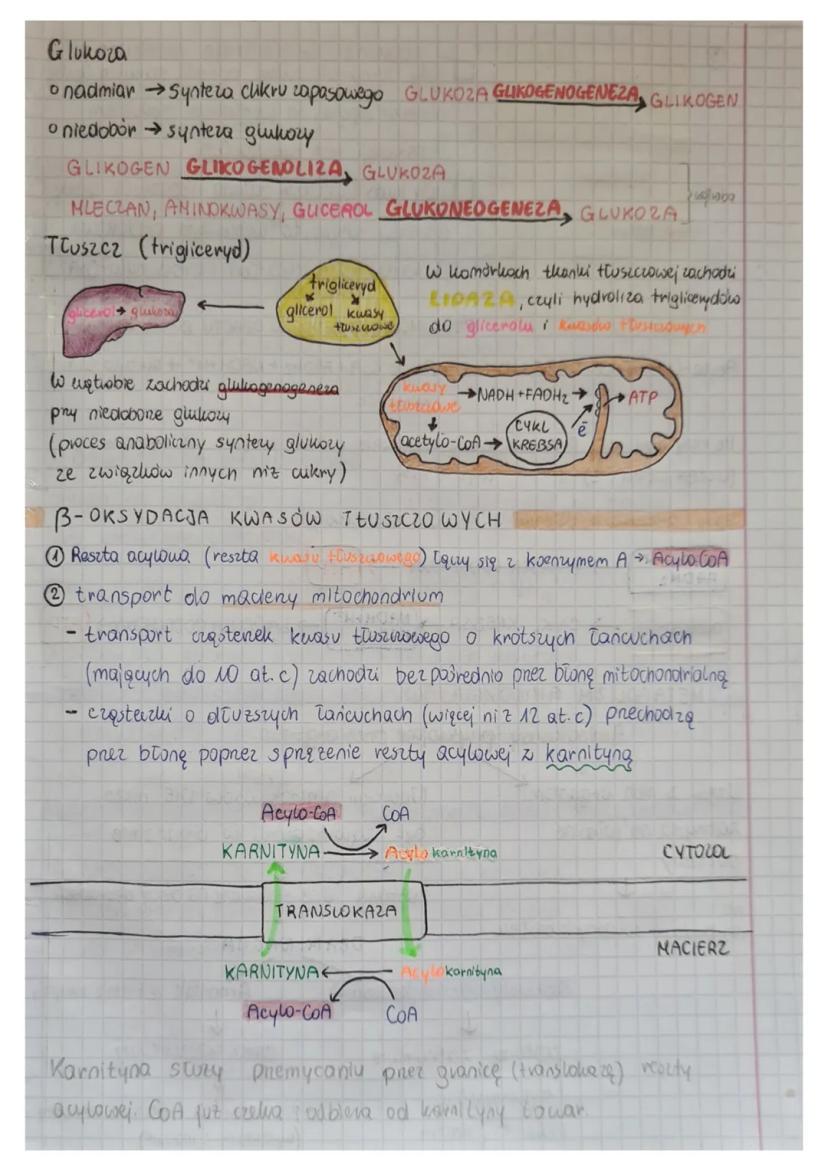 Glukoza
o nadmiar → synteza cukru zapasowego GLUKOZA GLIKOGENOGENEZA GLIKOGEN
o niedobór → synteza glukozy
GLIKOGEN GLIKOGENOLIZA GLUKOZA
MLECZAN, AMINOKWASY, GLICEROL GLUKONEOGENEZA GLUKOZA
Tłuszcz (trigliceryd)
W komórkach tkanki tłuszczowej zachodzi
LIPAZA, czyli hydroliza triglicerydów
do glicerolu i kwasów tłuszczowych
trigliceryd
glicerol kwasy
tłuszczowe
glicerol → glukoza
W wątrobie zachodzi glukogenogeneza
przy niedoborze glukozy
(proces anaboliczny syntezy glukozy
ze związków innych niż cukry)
kwasy
tłuszczowe
→ NADH + FADH₂ → → ATP
acetylo-CoA →
CYKL
KREBSA
ē
β-OKSYDACJA KWASÓW TŁUSZCZOWYCH
① Reszta acylowa (reszta kwasu tłuszczowego) łączy się z koenzymem A → Acylo-CoA
② transport do macierzy mitochondrium
- transport cząsteczek kwasu tłuszczowego o krótszych łańcuchach
(mających do 10 at. c) zachodzi bezpośrednio przez błonę mitochondrialną
- cząsteczki o dłuższych łańcuchach (więcej niż 12 at. c) przechodzą
przez błonę poprzez sprzężenie reszty acylowej z karnityną
Acylo-CoA CoA
KARNITYNA → Acylokarnityna CYTOZOL
TRANSLOKAZA
MACIERZ
KARNITYNA ← Acylokarnityna
Acylo-CoA CoA
Karnityna służy przemycaniu przez granicę (translokazę) reszty
acylowej. CoA już czeka i odbiera od karnityny towar.